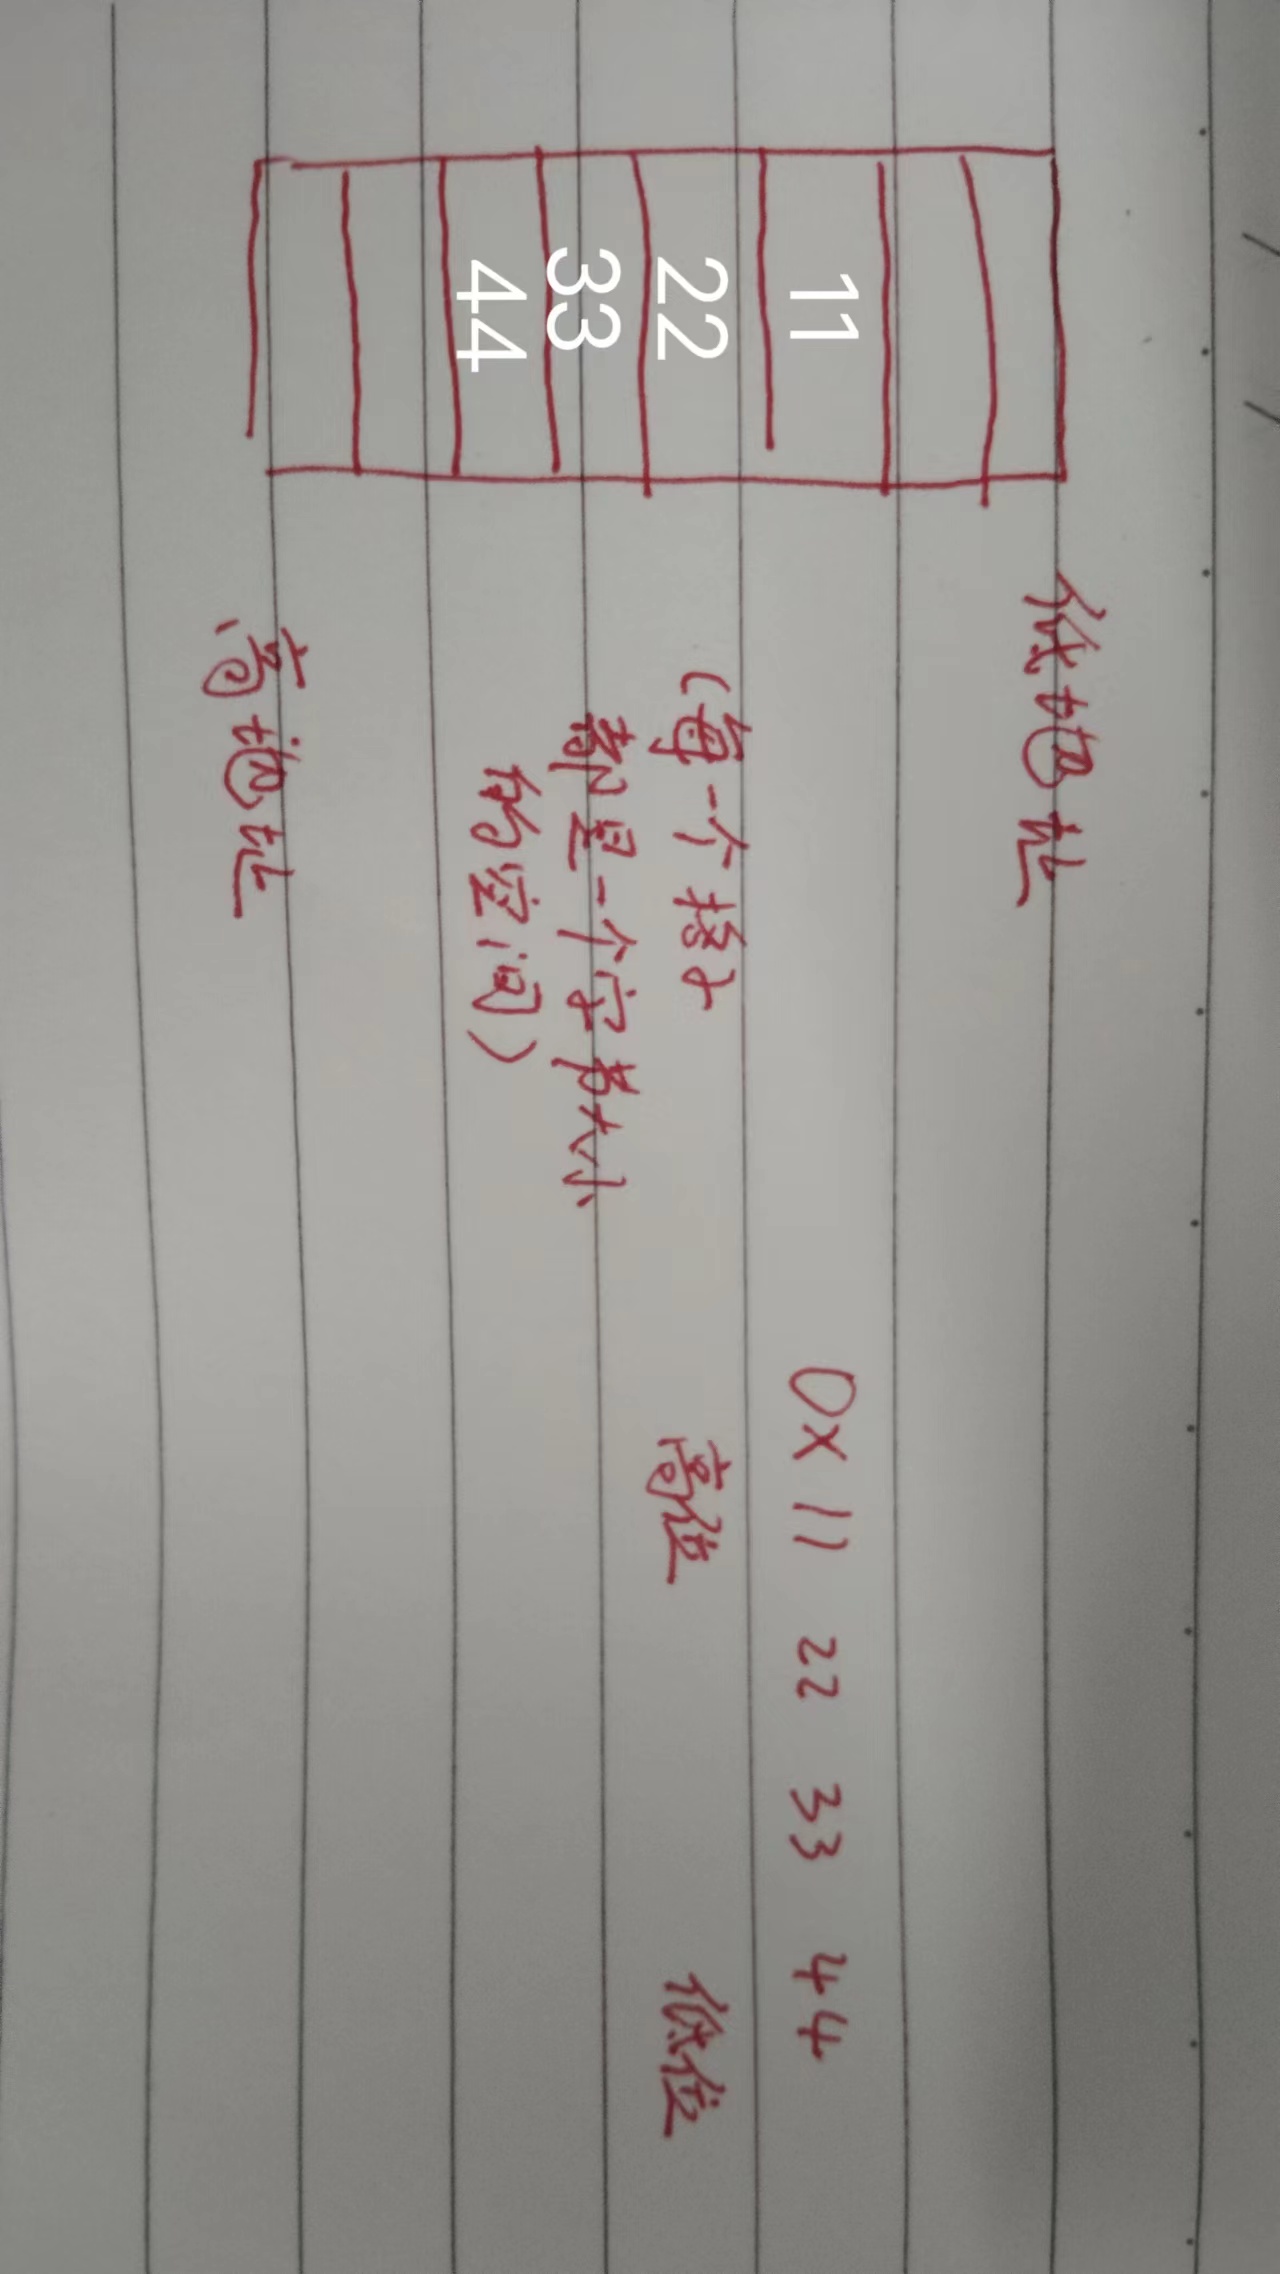 低地址
11
0X 11 22 33 44
22
(每一个格子
高位
低位
33
都是一个字节大小
44
的空间)
高地址